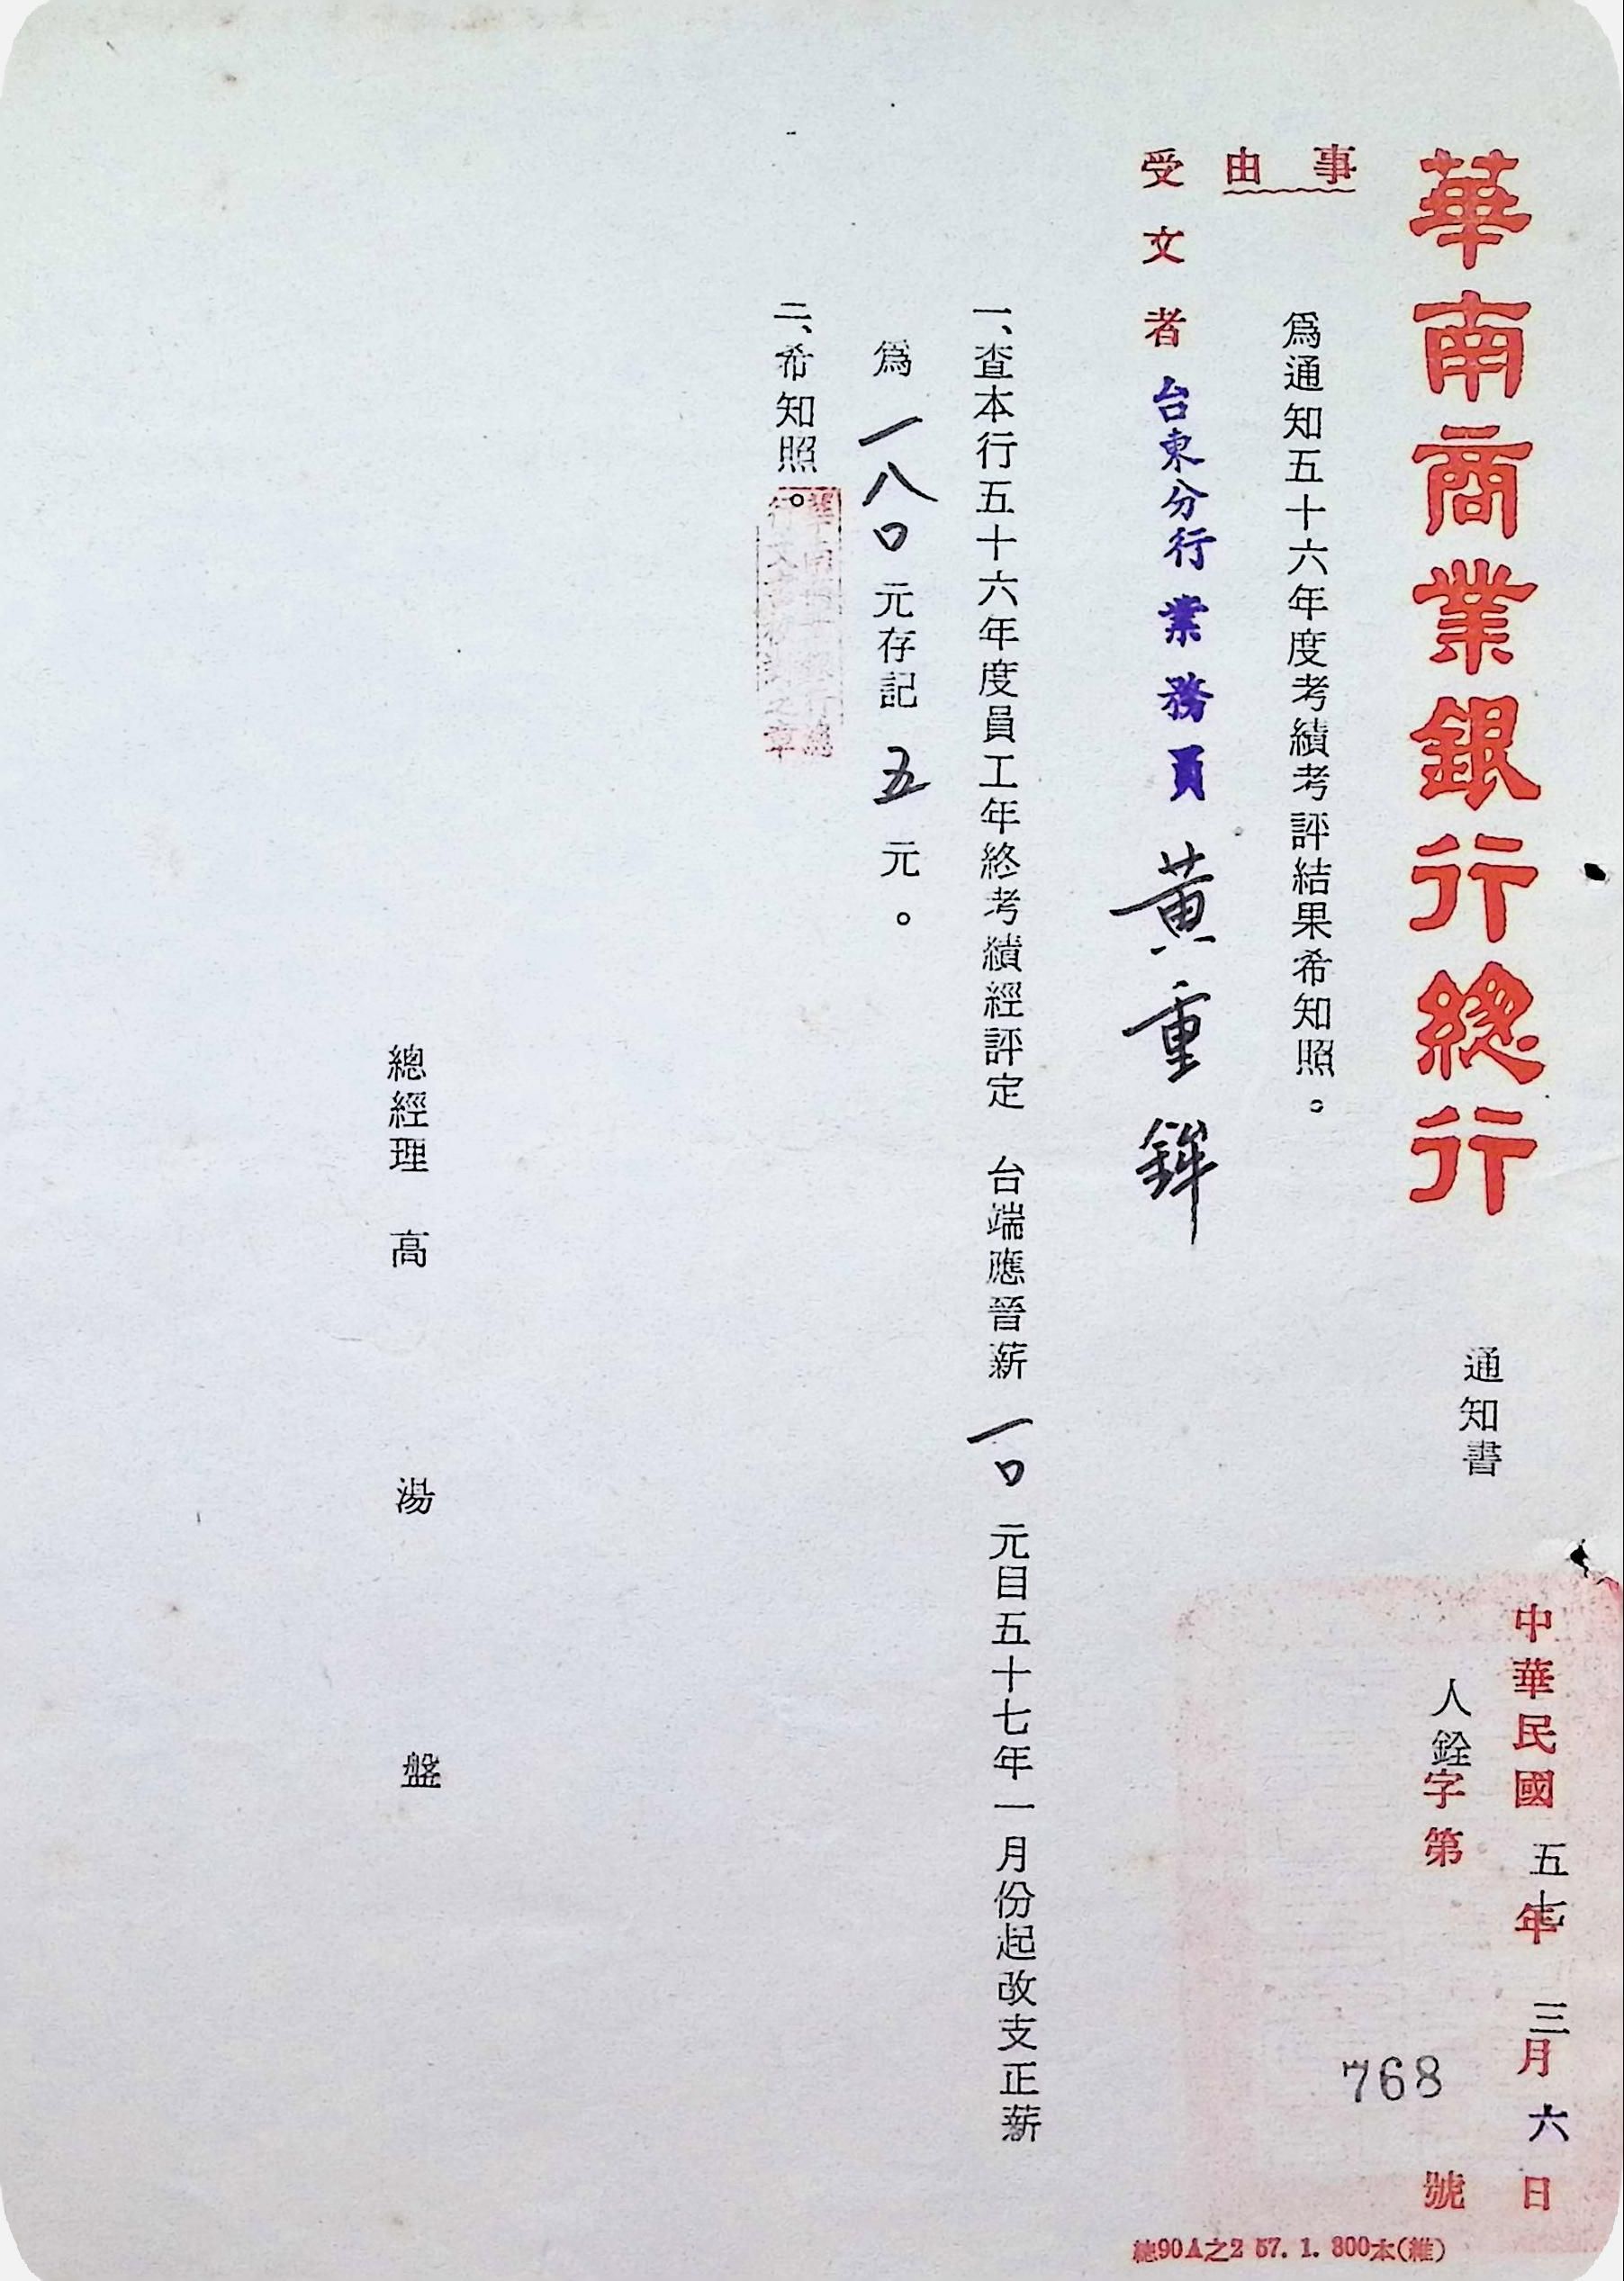 華南商業銀行總行 通知書
中華民國五七年三月六日
人銓字第768號
事由 為通知五十六年度考績考評結果希知照。
受文者 台東分行業務員 黃重鉾
一、查本行五十六年度員工年終考績經評定 台端應晉薪一〇元自五十七年一月份起改支正薪
為一八〇元存記五元。
二、希知照。
華南商業銀行總
行文書收封之章
總經理 高湯盤
總90A之2 57. 1. 300本(維)